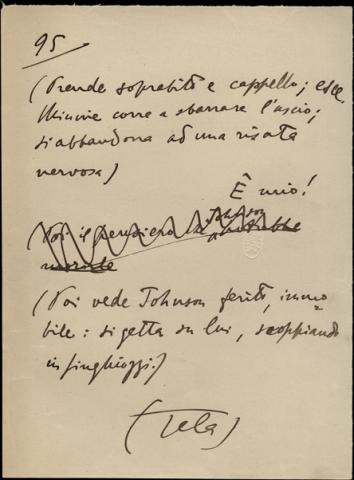 95
(Prende soprabito e cappello; esce.
Minnie corre a sbarrare l'uscio;
si abbandona ad una risata
nervosa)
È mio!
(Poi il pensiero Johnson
(Poi vede Johnson ferito, immo=
bile: si getta su lui, scoppiando
in singhiozzi.)
(Tela)